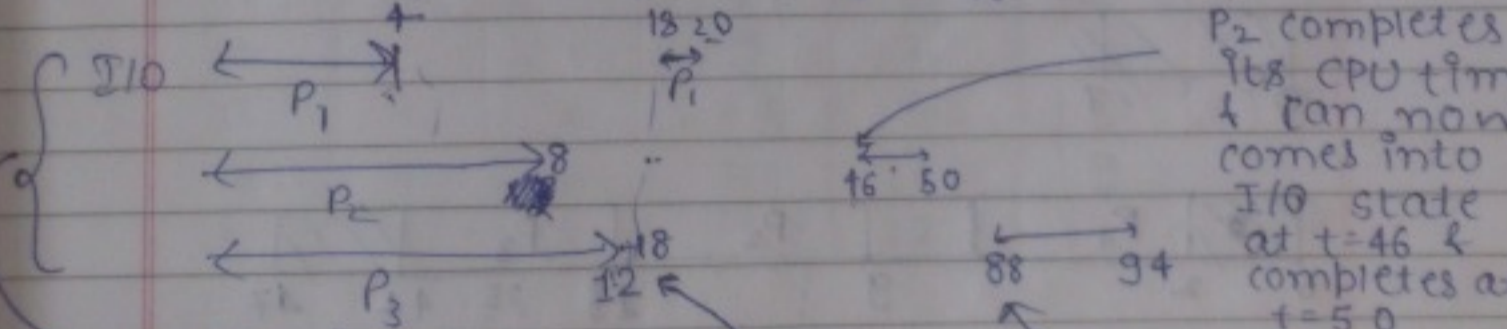 4 18 20
I/O P1 P1
8
P2 46 50
18
12 88 94
P3
P2 completes
its CPU tim
& can non
comes into
I/O state
at t=46 &
completes a
t=50